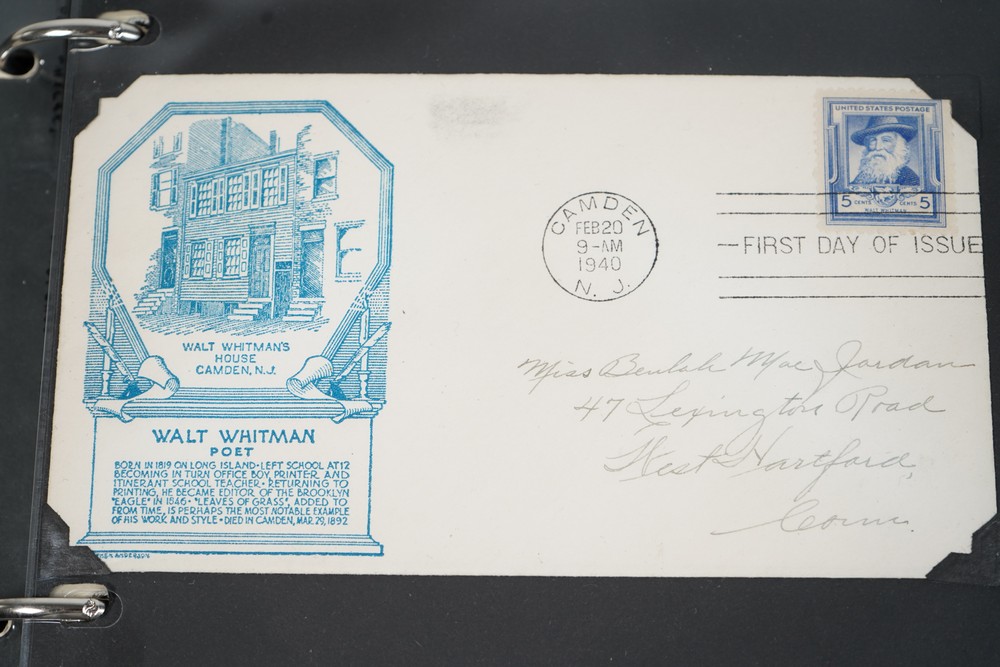 WALT WHITMAN'S
HOUSE
CAMDEN, N.J.
WALT WHITMAN
POET
BORN IN 1819 ON LONG ISLAND • LEFT SCHOOL AT 12
BECOMING IN TURN OFFICE BOY, PRINTER, AND
ITINERANT SCHOOL TEACHER • RETURNING TO
PRINTING, HE BECAME EDITOR OF THE BROOKLYN
"EAGLE" IN 1846 • "LEAVES OF GRASS", ADDED TO
FROM TIME, IS PERHAPS THE MOST NOTABLE EXAMPLE
OF HIS WORK AND STYLE • DIED IN CAMDEN, MAR. 29, 1892
ANDERSON
CAMDEN
FEB 20
9-AM
1940
N. J.
UNITED STATES POSTAGE
5 CENTS CENTS 5
WALT WHITMAN
FIRST DAY OF ISSUE
Miss Beulah Mae Jordan
47 Lexington Road
West Hartford,
Conn.